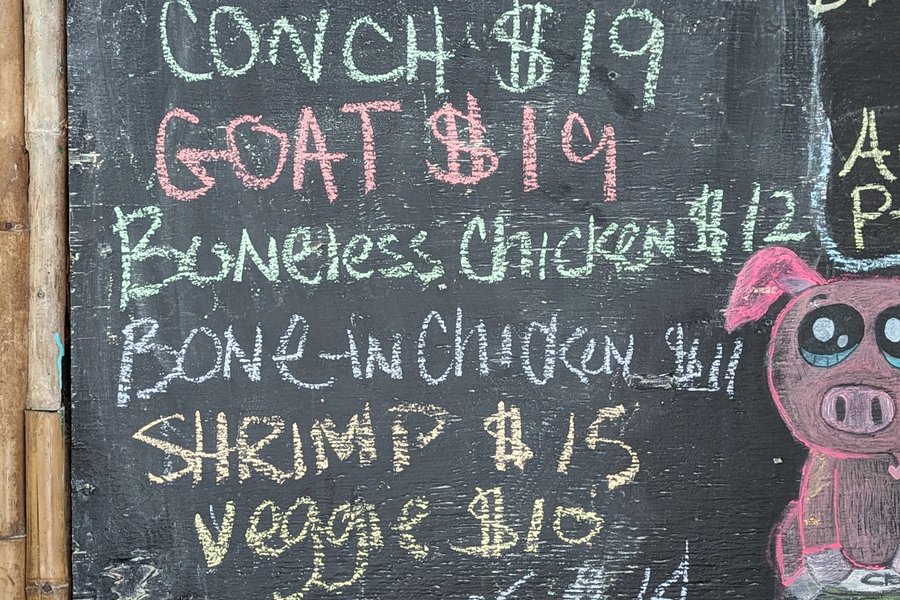 CONCH $19
GOAT $19
BONeless Chicken $12
BONe-iN Chicken $11
SHRIMP $15
veggie $10